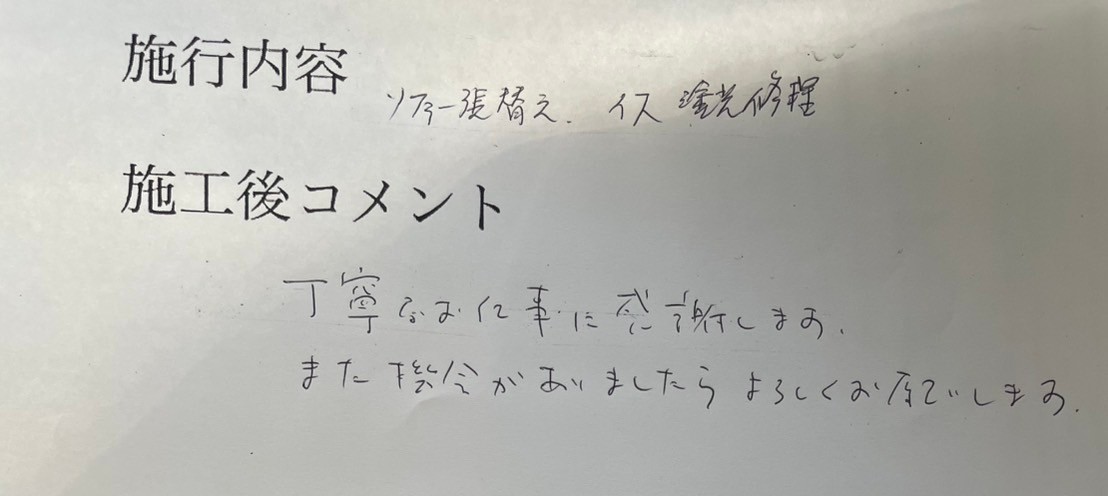 施行内容
ソファー張替え. イス 塗装修理
施工後コメント
丁寧なお仕事に感謝します.
また機会がありましたらよろしくお願いします.